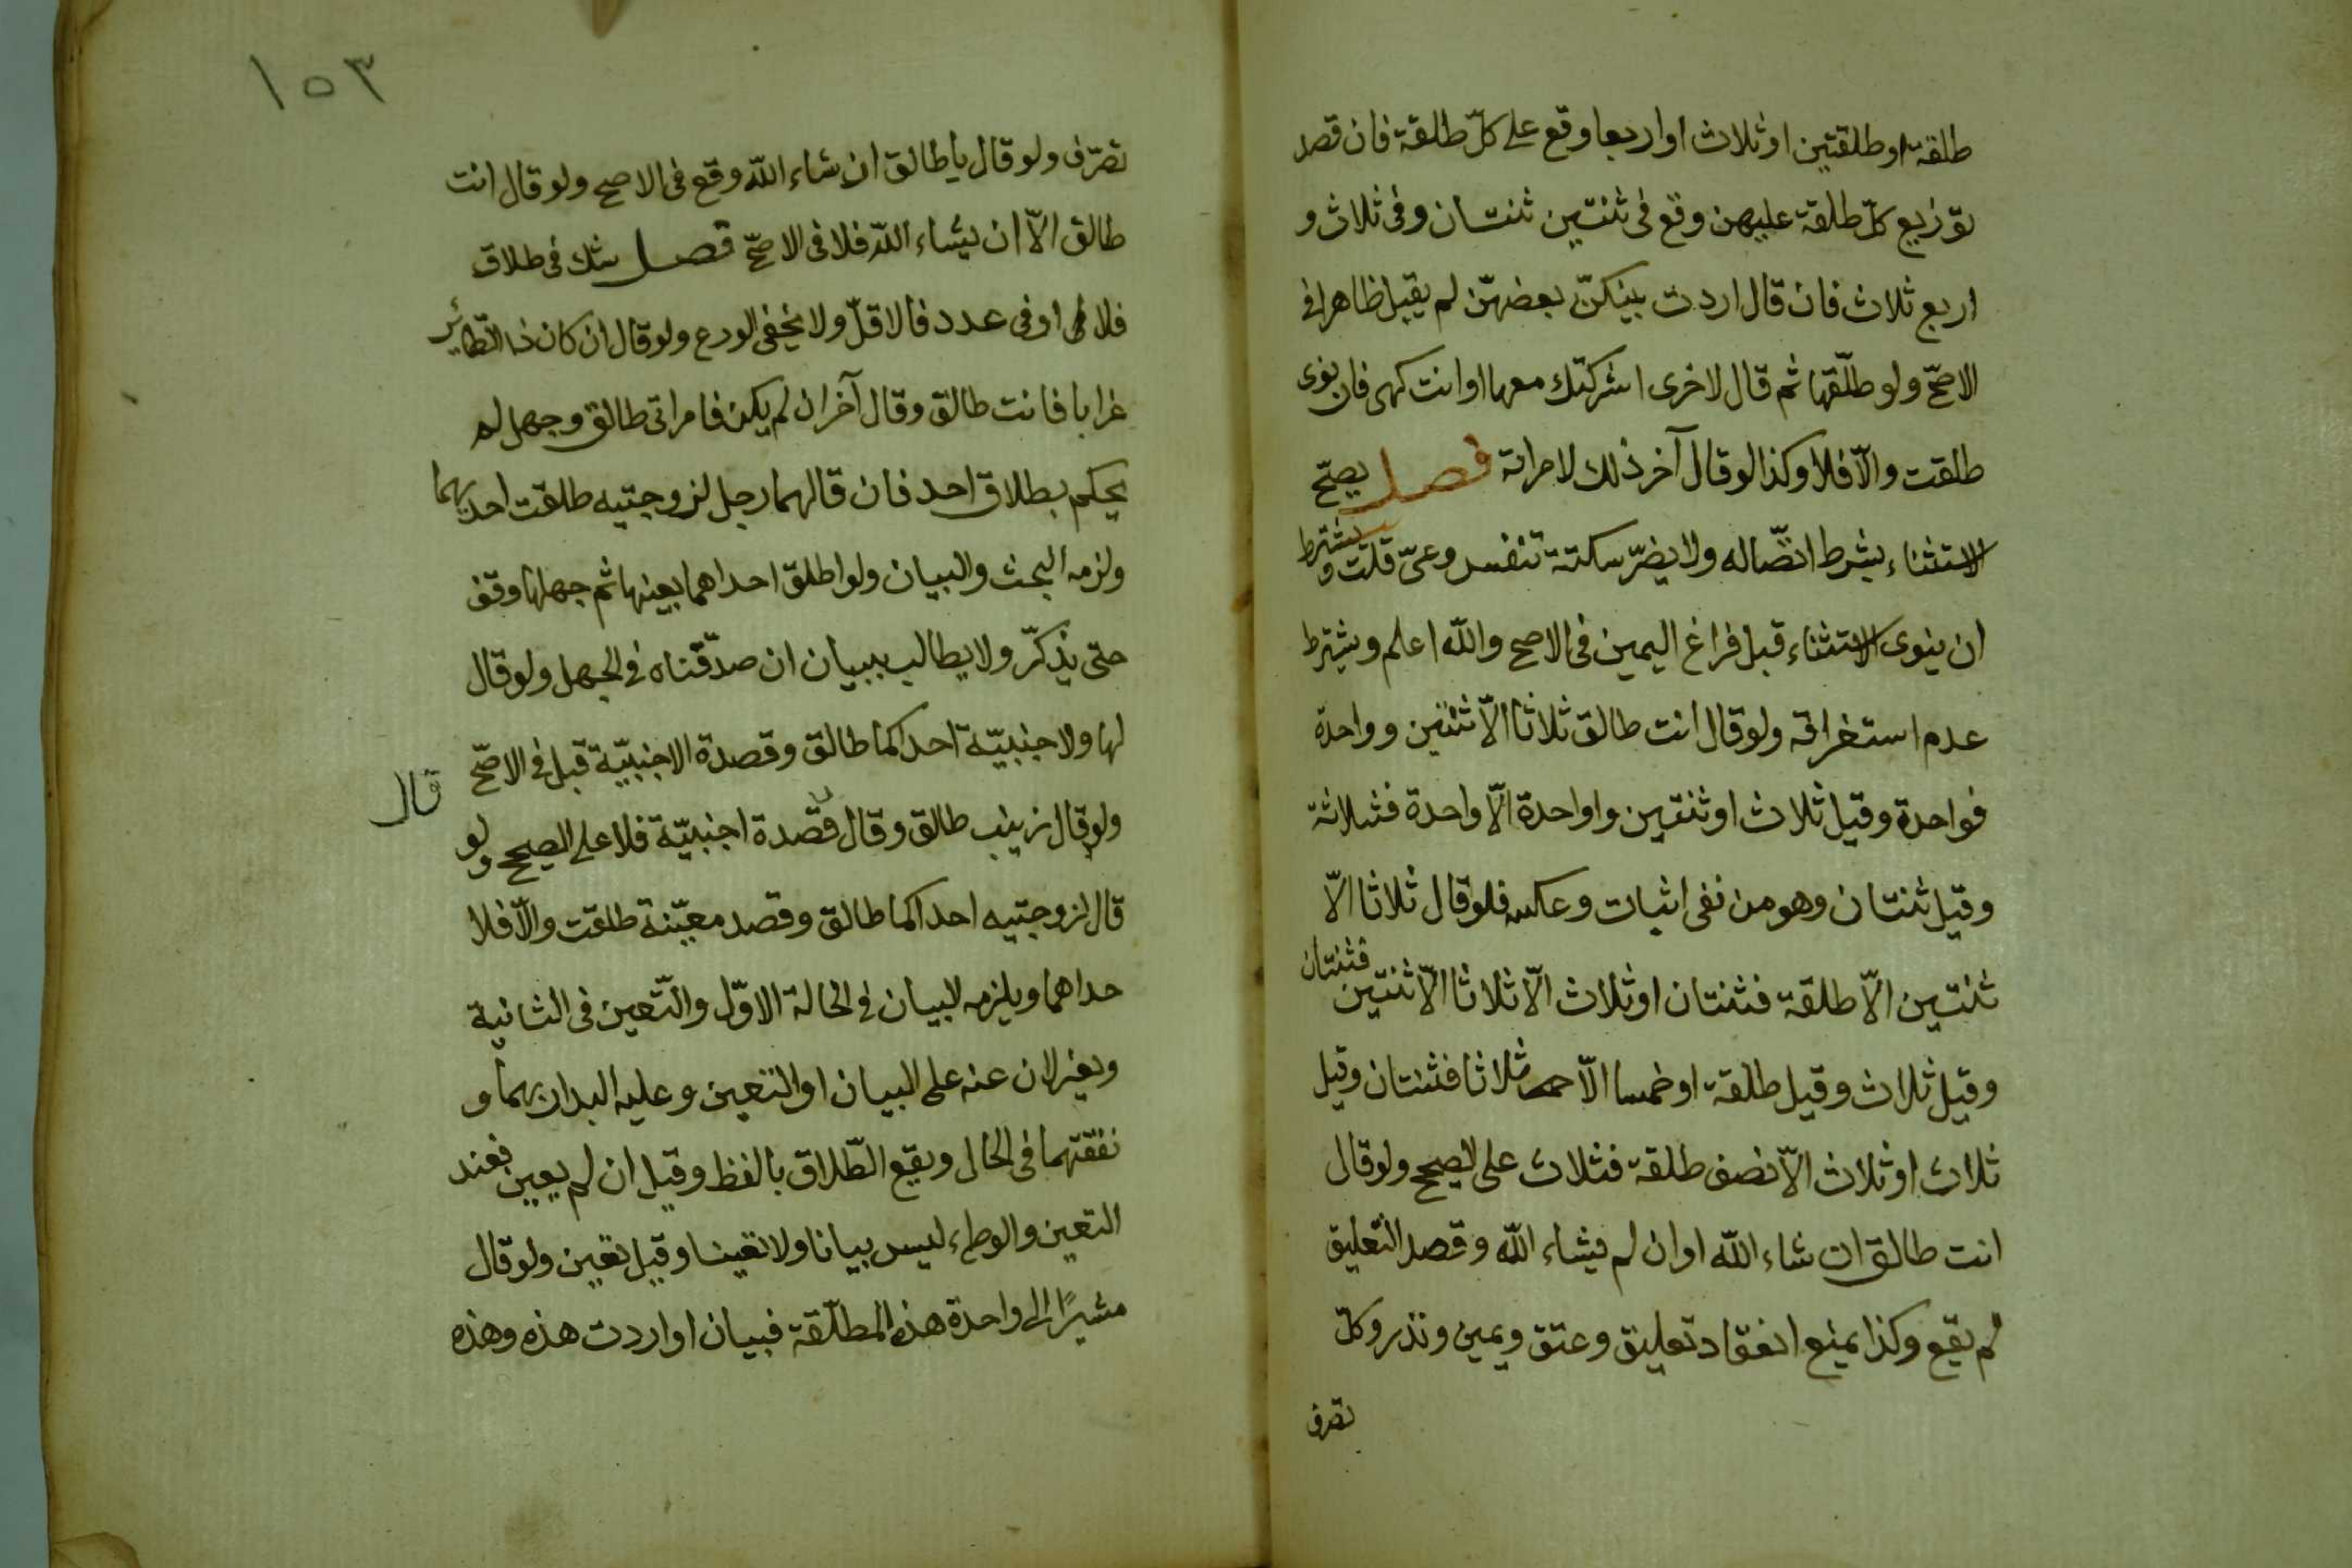 طلقة او طلقتين او ثلاث او اربعا وقع على كلّ طلقة فان قصد
توزيع كلّ طلقة عليهن وقع فى ثنتين ثنتان وفى ثلاث و
اربع ثلاث فان قال اردت بينكنّ بعضهنّ لم يقبل ظاهرا فى
الاصحّ ولو طلّقها ثم قال لاخرى اشركتك معها او انت كهى فان نوى
طلقت والّا فلا وكذا لو قال آخر ذلك لامراته فصل يصحّ
الاستثناء بشرط اتّصاله ولا يضرّ سكتة تنفس وعىّ قلت ويشترط
ان ينوى الاستثناء قبل فراغ اليمين فى الاصح والله اعلم ويشترط
عدم استغراقه ولو قال انت طالق ثلاثا الّا ثنتين وواحدة
فواحدة وقيل ثلاث او ثنتين وواحدة الّا واحدة فثلاثة
وقيل ثنتان وهو من نفى اثبات وعكسه فلو قال ثلاثا الّا
ثنتين الّا طلقة فثنتان او ثلاث الّا ثلاثا الّا ثنتين فثنتان
وقيل ثلاث وقيل طلقة او خمسا الّا ثلاثا فثنتان وقيل
ثلاث او ثلاث الّا نصف طلقة فثلاث على الصيح ولو قال
انت طالق ان شاء الله او ان لم يشاء الله وقصد التعليق
لم يقع وكذا يمنع انعقاد تعليق وعتق ويمين ونذر وكلّ
تصرف
١٥٣
تصرّف ولو قال يا طالق ان شاء اللّه وقع فى الاصح ولو قال انت
طالق الّا ان يشاء اللّه فلا فى الاصحّ فصل شك فى طلاق
فلا او فى عدد فالاقلّ ولا يخفى الورع ولو قال ان كان ذا الطّائر
غرابا فانت طالق وقال آخر ان لم يكن فامراتى طالق وجهل لم
يحكم بطلاق احد فان قالهما رجل لزوجتيه طلقت احديهما
ولزمه البحث والبيان ولو اطلق احداهما بعينها ثم جهلها وقف
حتى يذكّر ولا يطالب ببيان ان صدّقناه فى الجهل ولو قال
لها ولاجنبيّة احداكما طالق وقصدة الاجنبيّة قبل فى الاصحّ
ولو قال زينب طالق وقال قصّدة اجنبيّة فلا على الصيح ولو
قال
قال لزوجتيه احداكما طالق وقصد معيّنة طلقت والّا فلا
حداهما ويلزمه البيان فى الحالة الاوّل والتّعين فى الثانية
ويغرلان عنه على البيان او التعين وعليه البدار بهما و
نفقتهما فى الحال ويقع الطّلاق بالفظ وقيل ان لم يعين فعند
التعين والوطء ليس بيانا ولا تعينا وقيل تعين ولو قال
مشيرًا الى واحدة هذه المطلّقة فبيان او اردت هذه وهذه